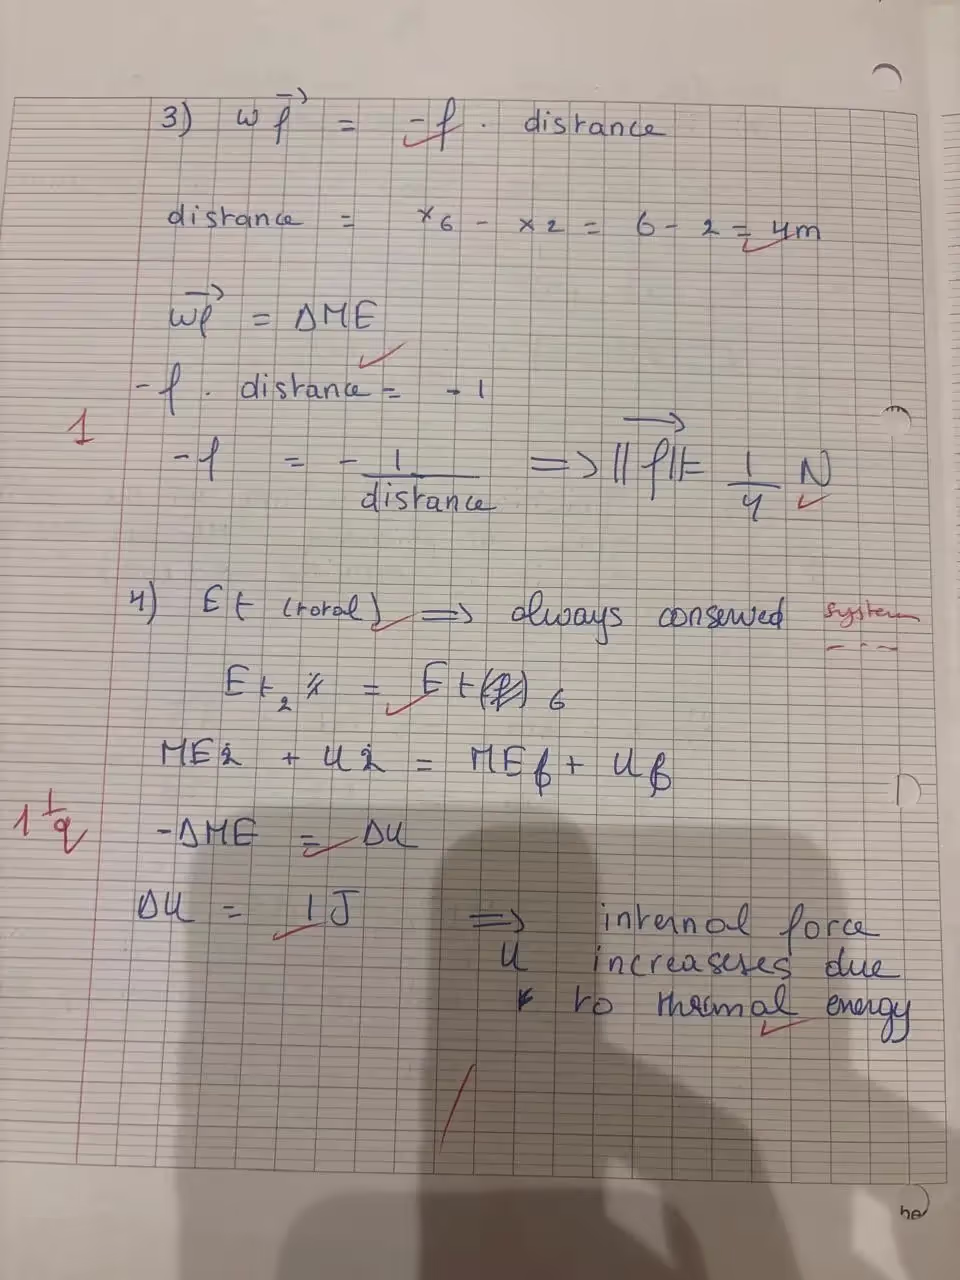 3) W f⃗ = -f . distance
distance = x6 - x2 = 6 - 2 = 4m
Wf⃗ = ΔME
-f . distance = - 1
1
-f = - 1/distance => ||f⃗|| = 1/4 N
4) Et (total) => always conserved system
Et2 = Et 6
ME2 + U2 = ME6 + U6
-ΔME = ΔU
1
ΔU = 1J => internal force
U increaseses due
to thermal energy